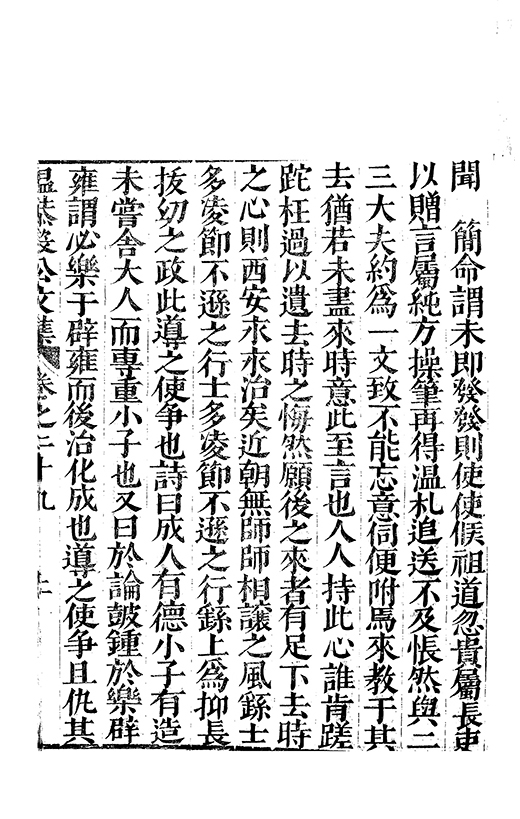 聞　簡命謂未即發發則使使候祖道忽貴屬長吏
以贈言屬純方操筆再得溫札追送不及悵然與二
三大夫約爲一文致不能忘意伺便附馬來教于其
去猶若未盡來時意此至言也人人持此心誰肯蹉
跎枉過以遺去時之悔然願後之來者有足下去時
之心則西安永永治矣近朝無師師相讓之風繇士
多凌節不遜之行士多凌節不遜之行繇上爲抑長
拔幼之政此導之使爭也詩曰成人有德小子有造
未嘗舍大人而專重小子也又曰於論鼓鍾於樂辟
雍謂必樂于辟雍而後治化成也導之使爭且仇其
溫恭毅公文集　卷之二十九